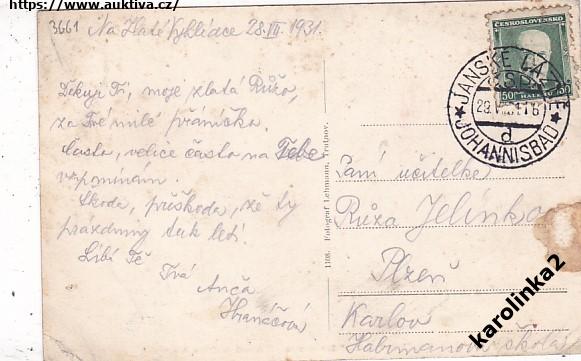 https://www.auktiva.cz/
3661
Na Zlaté Vyhlídce 28.VII.1931.
Děkuji Ti, moje zlatá Růžo,
za Tvé milé přáníčko.
Často, velice často na Tebe
vzpomínám.
Škoda, přeškoda, že ty
prázdniny tak letí.
Líbá Tě
Tvá
Anča
ČESKOSLOVENSKO
50
JANSKÉ LÁZNĚ
ČSR
d
★ JOHANNISBAD ★
1108. Fotograf Lehmann, Trutnov.
Paní učitelka
Růža Jelínko
Plzeň
Karlov
Habrmanova škola
karolinka2